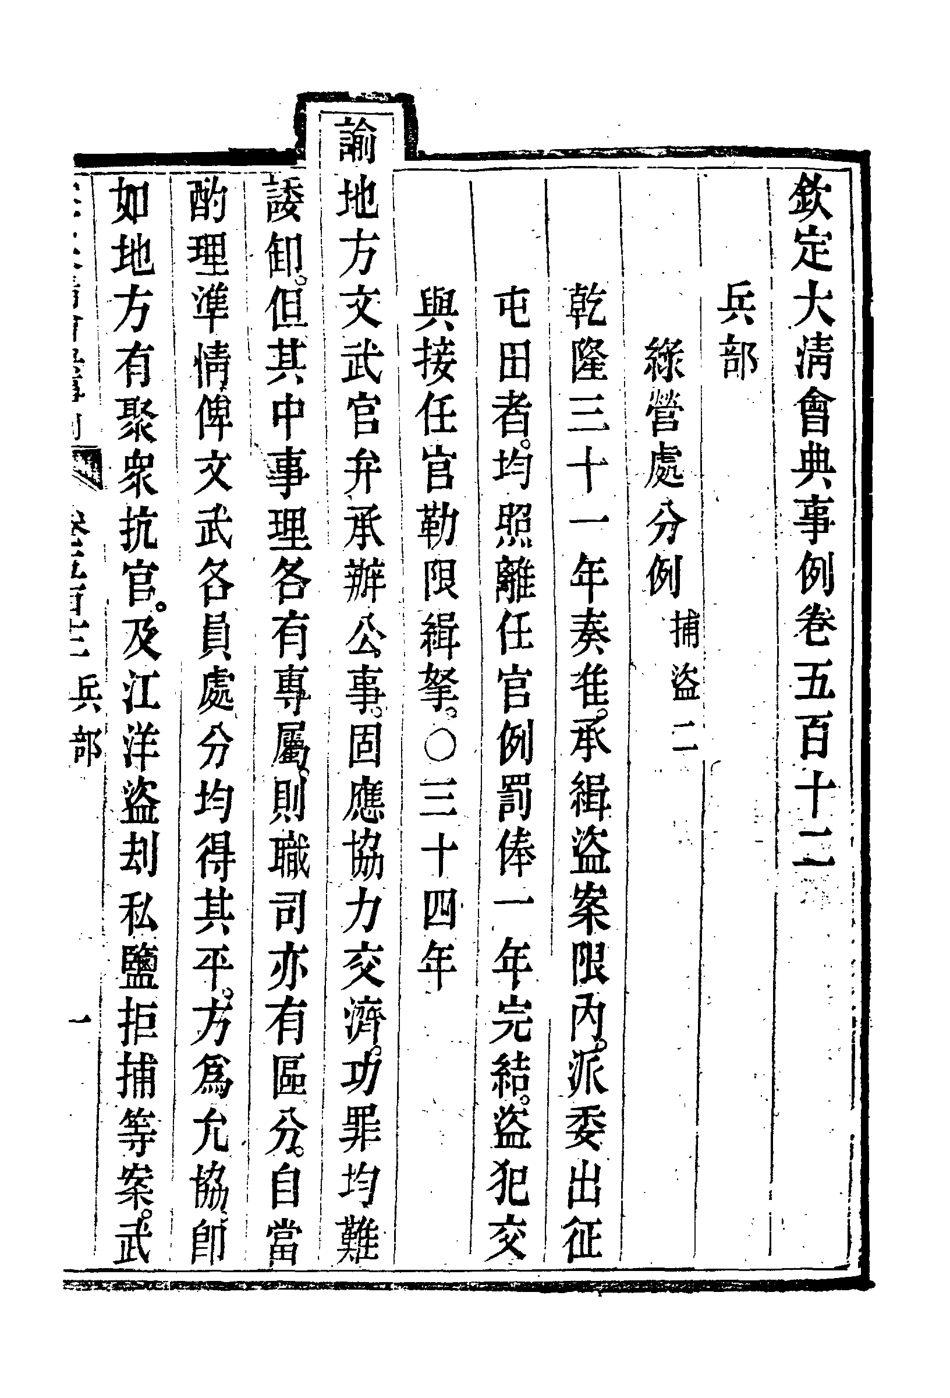 欽定大清會典事例卷五百十二
兵部
綠營處分例 捕盜二
乾隆三十一年奏准。承緝盜案限內。派委出征
屯田者。均照離任官例罰俸一年完結。盜犯交
與接任官勒限緝拏。○三十四年
諭地方文武官弁承辦公事。固應協力交濟。功罪均難
諉卸。但其中事理各有專屬。則職司亦有區分。自當
酌理準情俾文武各員處分均得其平。方爲允協。卽
如地方有聚衆抗官。及江洋盜刦私鹽拒捕等案。武
兵部
一